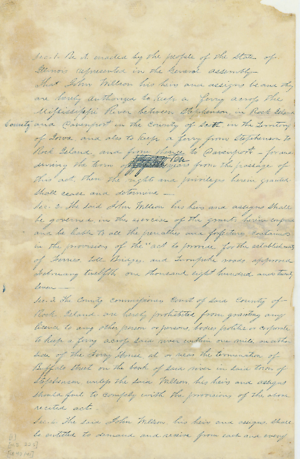 Sec. 1. Be it enacted by the people of the State of
Illinois represented in the General Assembly
That John Wilson his heirs and assigns be and they
are hereby authorized to keep a ferry across the
Mississippi River between Stephenson in Rock Island
County and Davenport in the County of Scott in the Territory
of Iowa and also to keep a ferry from Stephenson to
Rock Island, and from thence to Davenport - for and
during the term of ten years from the passage of
this act, then the rights and privileges herein given
shall cease and determine -
Sec. 2. The said John Wilson his heirs and assigns shall
be governed in the exercise of the grant herein
and be liable to all the penalties and forfeitures contained
in the provisions of the "act to provide for the establishment
of Ferries Toll Bridges and Turnpike roads approved
February twelfth one thousand eight hundred and twenty
seven -
Sec. 3 The County commissioners court of said county of
Rock Island are hereby prohibited from granting any
license to any other person or persons bodies politic or corporate
to keep a ferry across said river within one mile
of the ferry at or near the termination of
Buffalo street on the bank of said river in said town of
Stephenson unless the said Wilson his heirs and assigns
should fail to comply with the provisions of the above
recited act.
Sec. 4 The said John Wilson his heirs and assigns shall
be entitled to demand and receive from each and every